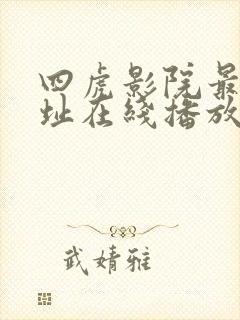 四虎影院最
址在线播放
武婧雅